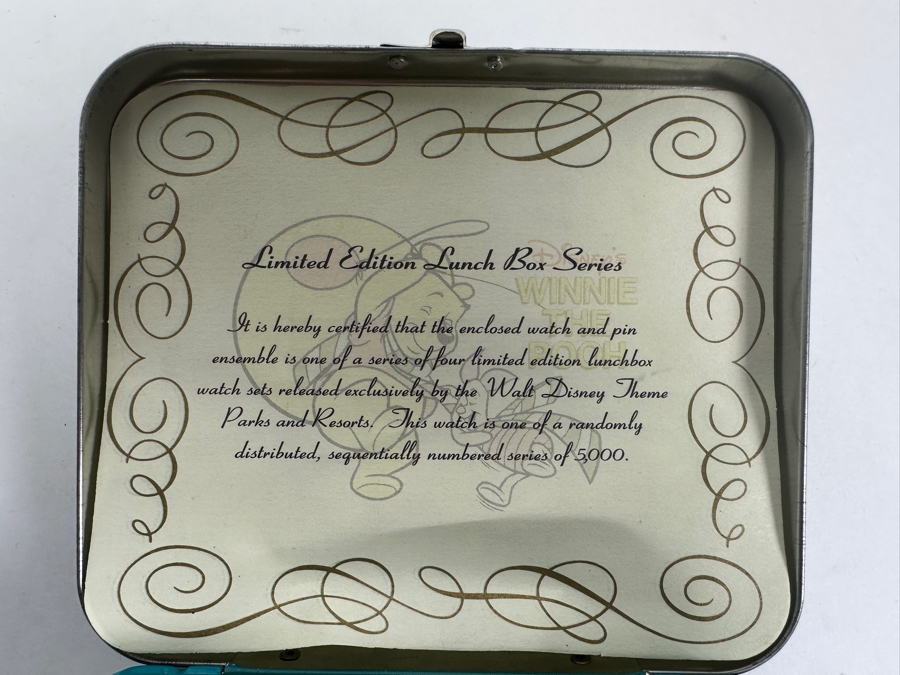 Limited Edition Lunch Box Series
DISNEY'S
WINNIE
THE
POOH
It is hereby certified that the enclosed watch and pin
ensemble is one of a series of four limited edition lunchbox
watch sets released exclusively by the Walt Disney Theme
Parks and Resorts. This watch is one of a randomly
distributed, sequentially numbered series of 5,000.